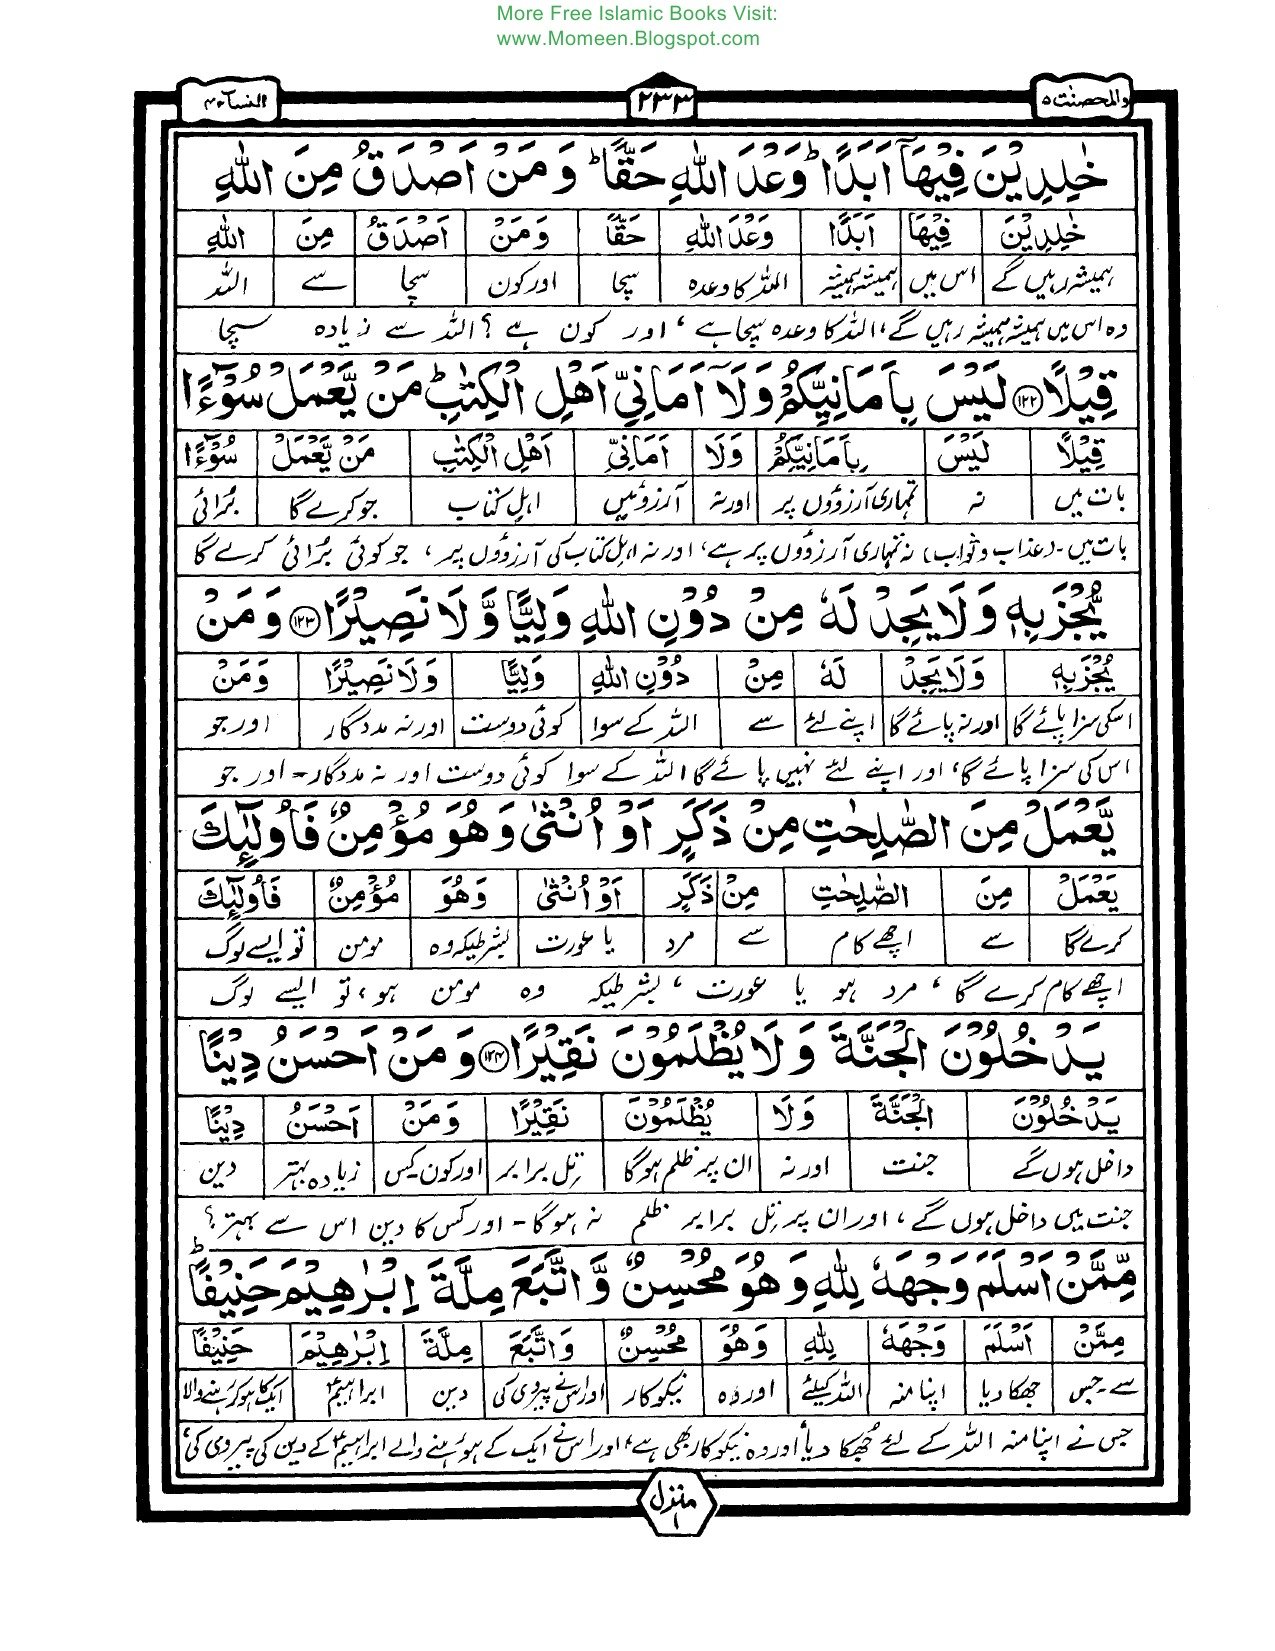 More Free Islamic Books Visit:
www.Momeen.Blogspot.com
والمحصنٰت ۵ ۲۳۳ النسآء ۴
خٰلِدِیْنَ فِیْهَاۤ اَبَدًا ؕ وَعْدَ اللّٰهِ حَقًّا ؕ وَ مَنْ اَصْدَقُ مِنَ اللّٰهِ
خٰلِدِیْنَ فِیْهَا اَبَدًا وَعْدَ اللّٰهِ حَقًّا وَمَنْ اَصْدَقُ مِنَ اللّٰهِ
ہمیشہ رہیں گے اس میں ہمیشہ ہمیشہ اللہ کا وعدہ سچا اور کون سچا سے اللہ
وہ اس میں ہمیشہ ہمیشہ رہیں گے، اللہ کا وعدہ سچا ہے، اور کون ہے؟ اللہ سے زیادہ سچا
قِیْلًا ۝۱۲۲ لَیْسَ بِاَمَانِیِّكُمْ وَلَاۤ اَمَانِیِّ اَهْلِ الْكِتٰبِ ؕ مَنْ یَّعْمَلْ سُوْٓءًا
قِیْلًا لَیْسَ بِاَمَانِیِّكُمْ وَلَا اَمَانِیِّ اَهْلِ الْكِتٰبِ مَنْ یَّعْمَلْ سُوْٓءًا
بات میں نہ تمہاری آرزوؤں پر اور نہ آرزوئیں اہل کتاب جو کرے گا بُرائی
بات میں۔ (عذاب و ثواب) نہ تمہاری آرزوؤں پر ہے، اور نہ اہل کتاب کی آرزوؤں پر، جو کوئی بُرائی کرے گا
یُّجْزَ بِهٖ وَلَا یَجِدْ لَهٗ مِنْ دُوْنِ اللّٰهِ وَلِیًّا وَّ لَا نَصِیْرًا ۝۱۲۳ وَمَنْ
یُّجْزَ بِهٖ وَلَا یَجِدْ لَهٗ مِنْ دُوْنِ اللّٰهِ وَلِیًّا وَلَا نَصِیْرًا وَمَنْ
اسکی سزا پائے گا اور نہ پائے گا اپنے لئے سے اللہ کے سوا کوئی دوست اور نہ مددگار اور جو
اس کی سزا پائے گا، اور اپنے لئے نہیں پائے گا اللہ کے سوا کوئی دوست اور نہ مددگار۔ اور جو
یَّعْمَلْ مِنَ الصّٰلِحٰتِ مِنْ ذَكَرٍ اَوْ اُنْثٰی وَهُوَ مُؤْمِنٌ فَاُولٰٓئِكَ
یَعْمَلْ مِنَ الصّٰلِحٰتِ مِنْ ذَكَرٍ اَوْ اُنْثٰی وَهُوَ مُؤْمِنٌ فَاُولٰٓئِكَ
کرے گا سے اچھے کام سے مرد یا عورت بشرطیکہ وہ مومن تو ایسے لوگ
اچھے کام کرے گا، مرد ہو یا عورت، بشرطیکہ وہ مومن ہو، تو ایسے لوگ
یَدْخُلُوْنَ الْجَنَّةَ وَ لَا یُظْلَمُوْنَ نَقِیْرًا ۝۱۲۴ وَ مَنْ اَحْسَنُ دِیْنًا
یَدْخُلُوْنَ الْجَنَّةَ وَلَا یُظْلَمُوْنَ نَقِیْرًا وَمَنْ اَحْسَنُ دِیْنًا
داخل ہوں گے جنت اور نہ ان پر ظلم ہوگا تِل برابر اور کون کس زیادہ بہتر دین
جنت میں داخل ہوں گے، اور ان پر تِل برابر ظلم نہ ہوگا۔ اور کس کا دین اس سے بہتر؟
مِّمَّنْ اَسْلَمَ وَجْهَهٗ لِلّٰهِ وَهُوَ مُحْسِنٌ وَّ اتَّبَعَ مِلَّةَ اِبْرٰهِیْمَ حَنِیْفًا ؕ
مِمَّنْ اَسْلَمَ وَجْهَهٗ لِلّٰهِ وَهُوَ مُحْسِنٌ وَاتَّبَعَ مِلَّةَ اِبْرٰهِیْمَ حَنِیْفًا
سے۔جس جھکا دیا اپنا منہ اللہ کیلئے اور وہ نیکوکار اور اس نے پیروی کی دین ابراہیمؑ ایک کا ہو کر رہنے والا
جس نے اپنا منہ اللہ کے لئے جُھکا دیا، اور وہ نیکوکار بھی ہے، اور اس نے ایک کے ہو رہنے والے ابراہیمؑ کے دین کی پیروی کی،
منزل ۱